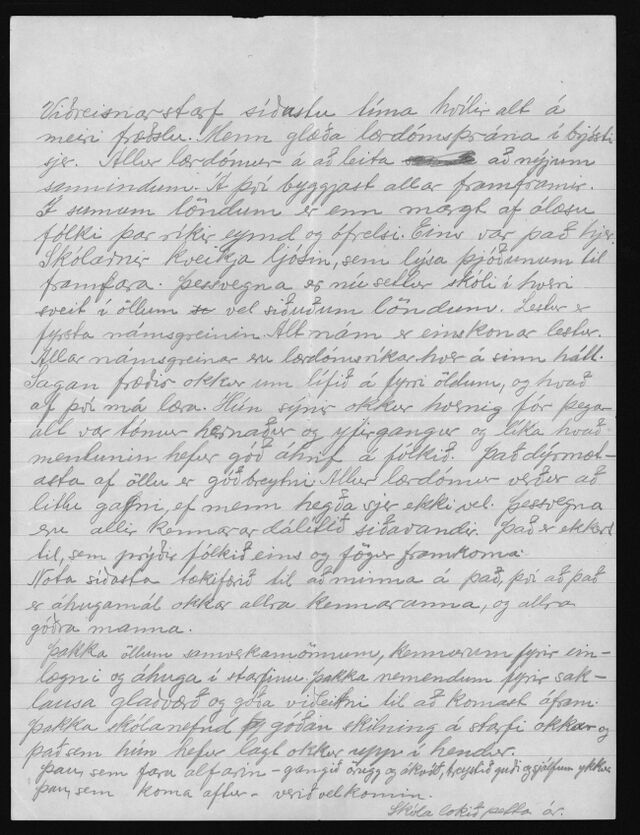 Viðreisnarstarf síðustu tíma hvílir alt á
meiri fræðslu. Menn glæða lærdómsþrána í brjósti
sjer. Allur lærdómur á að leita að nýjum
sannindum. Á því byggjast allar framfarir.
Í sumum löndum er enn margt af ólæsu
fólki þar ríkir eymd og ófrelsi. Eins var það hjer.
Skólarner kveikja ljósin, sem lysa þjóðunum til
framfara. Þessvegna er nú settur skóli í hverri
sveit í öllum vel siðuðum löndum. Lestur er
fyrsta námsgreinin. Alt nám er einskonar lestur.
Allar námsgreinar eru lærdómsríkar hver á sinn hátt.
Sagan fræðir okkur um lífið á fyrri öldum, og hvað
af því má læra. Hún sýnir okkur hvernig fór þegar
alt var tómur hernaður og yfirgangur og líka hvað
mentunin hefur góð áhrif á fólkið. Það dýrmæt-
asta af öllu er góð breytni. Allur lærdómur verður að
litlu gagni, ef menn hegða sjer ekki vel. Þessvegna
eru allir kennarar dálítið siðavandir. Það er ekkert
til, sem prýðir fólkið eins og fögur framkoma.
Nota síðasta tækifærið til að minna á það, því að það
er áhugamál okkar allra kennaranna, og allra
góðra manna.
Þakka öllum samverkamönnum, kennurum fyrir ein-
lægni og áhuga í starfinu þakka nemendum fyrir sak-
lausa glaðværð og góða viðleitni til að komast áfram
þakka skólanefnd góðan skilning á starfi okkar og
það sem hún hefur lagt okkur upp í hendur.
Þau, sem fara alfarin - gangið örugg og ákveðið, treystið guði og sjálfum ykkur
þau, sem koma aftur - verið velkomin.
Skóla lokið þetta ár.